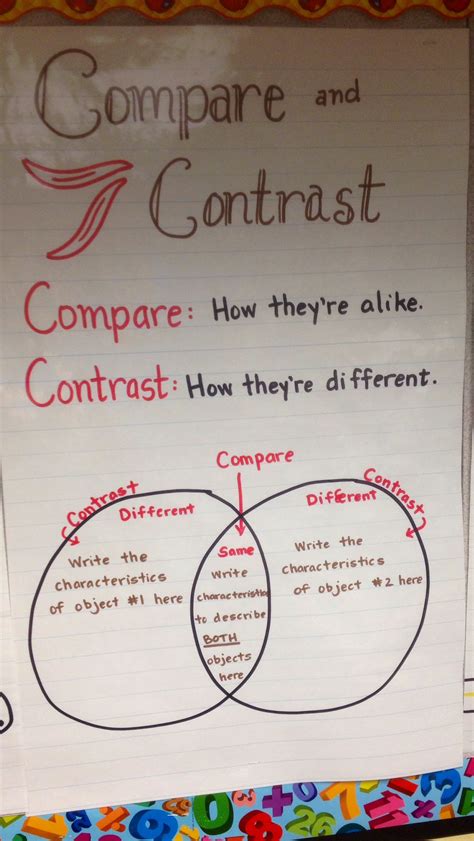 Compare and
Contrast
Compare: How they're alike.
Contrast: How they're different.
Compare
Contrast
Different
Write the
characteristics
of object #1 here
Same
Write
characteristics
to describe
BOTH
objects
here
Contrast
Different
Write the
characteristics
of object #2 here